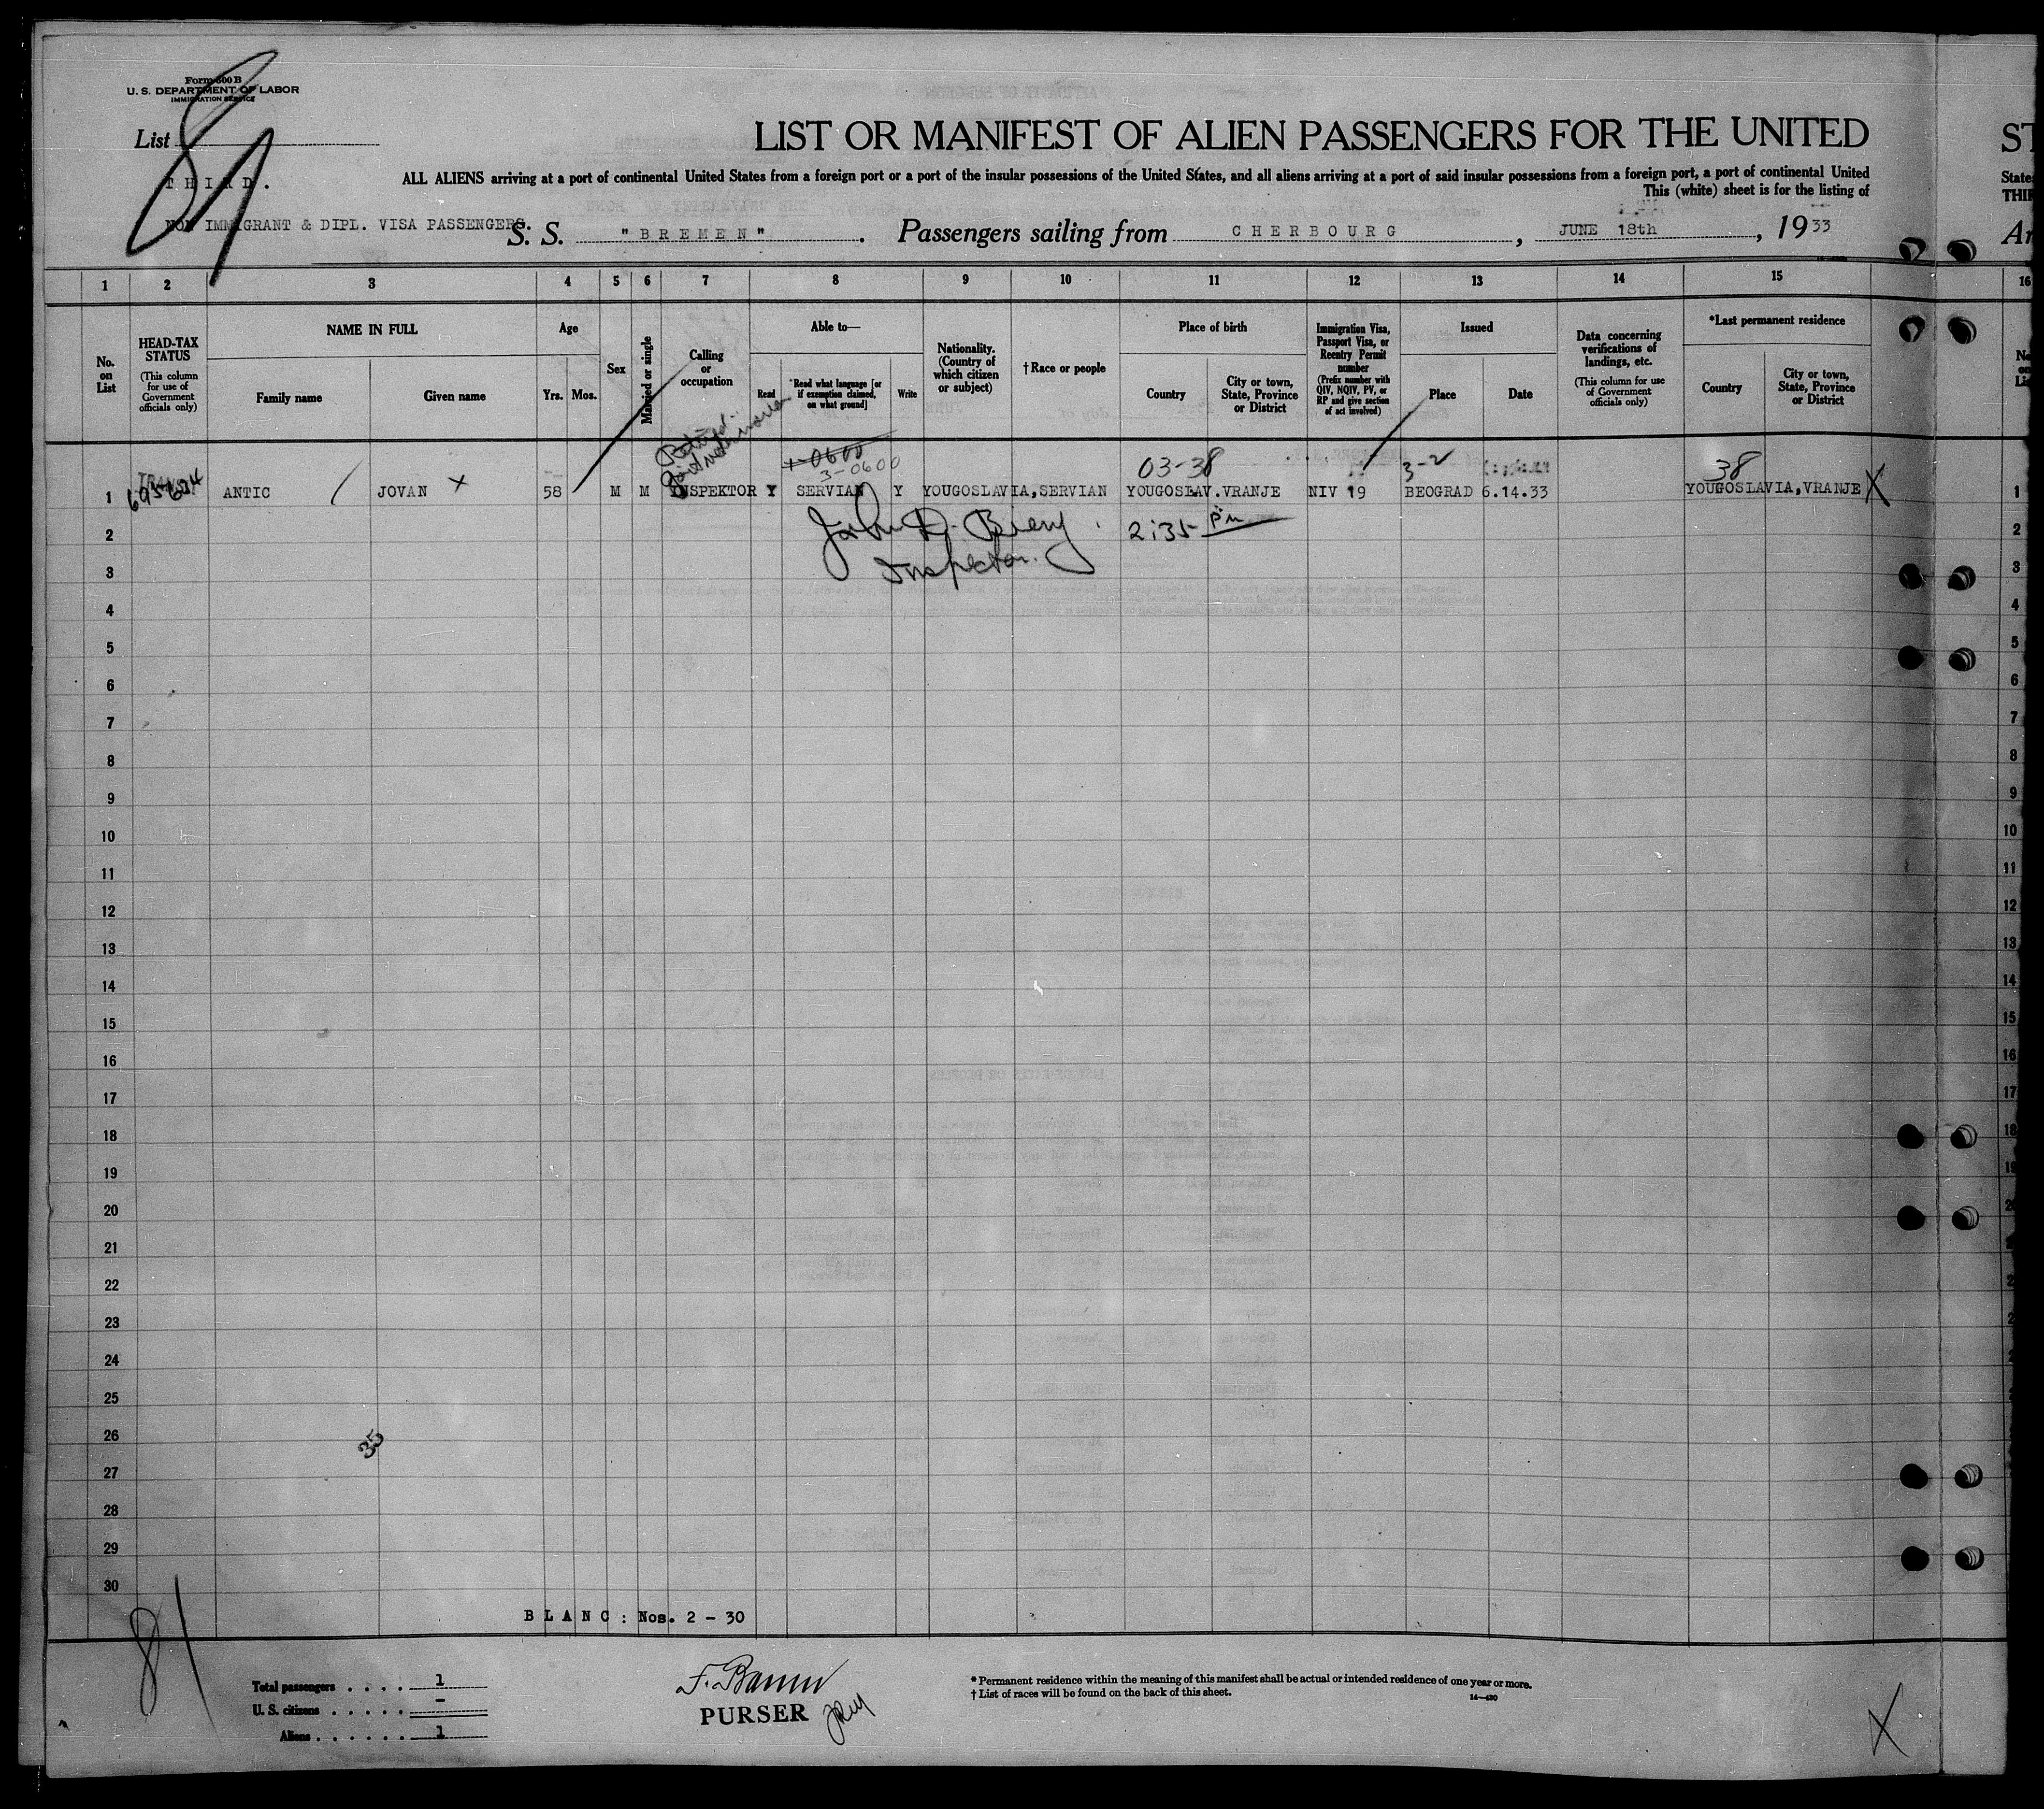 Form 500 B
U. S. DEPARTMENT OF LABOR
IMMIGRATION SERVICE
List 81
THIRD.
NON IMMIGRANT & DIPL. VISA PASSENGERS.
LIST OR MANIFEST OF ALIEN PASSENGERS FOR THE UNITED
ST
ALL ALIENS arriving at a port of continental United States from a foreign port or a port of the insular possessions of the United States, and all aliens arriving at a port of said insular possessions from a foreign port, a port of continental United
States
This (white) sheet is for the listing of
S. S. "BREMEN". Passengers sailing from CHERBOURG, JUNE 18th, 1933
1 2 3 4 5 6 7 8 9 10 11 12 13 14 15 16
No. on List
HEAD-TAX STATUS
(This column for use of Government officials only)
NAME IN FULL
Family name
Given name
Age
Yrs. Mos.
Sex
Married or single
Calling or occupation
Able to—
Read
*Read what language [or if exemption claimed, on what ground]
Write
Nationality. (Country of which citizen or subject)
†Race or people
Place of birth
Country
City or town, State, Province or District
Immigration Visa, Passport Visa, or Reentry Permit number
(Prefix number with QIV, NQIV, PV, or RP and give section of act involved)
Issued
Place
Date
Data concerning verifications of landings, etc.
(This column for use of Government officials only)
*Last permanent residence
Country
City or town, State, Province or District
TRANSIT
+0600
3-0600
03-38
3-2
38
1 ANTIC JOVAN X 58 M M INSPEKTOR Y SERVIAN Y YOUGOSLAVIA,SERVIAN YOUGOSLAV.VRANJE NIV 19 BEOGRAD 6.14.33 YOUGOSLAVIA,VRANJE X 1
2 2
John D. Bieny 2:35 pm
3 3
Inspector.
4 4
5 5
6 6
7 7
8 8
9 9
10 10
11 11
12 12
13 13
14 14
15 15
16 16
17 17
18 18
19 19
20
21
22
23
24
25
26
35
27
28
29
30
BLANC: Nos. 2 - 30
81
Total passengers .... 1
U. S. citizens ..... -
Aliens ...... 1
PURSER
* Permanent residence within the meaning of this manifest shall be actual or intended residence of one year or more.
† List of races will be found on the back of this sheet.
14—430
X